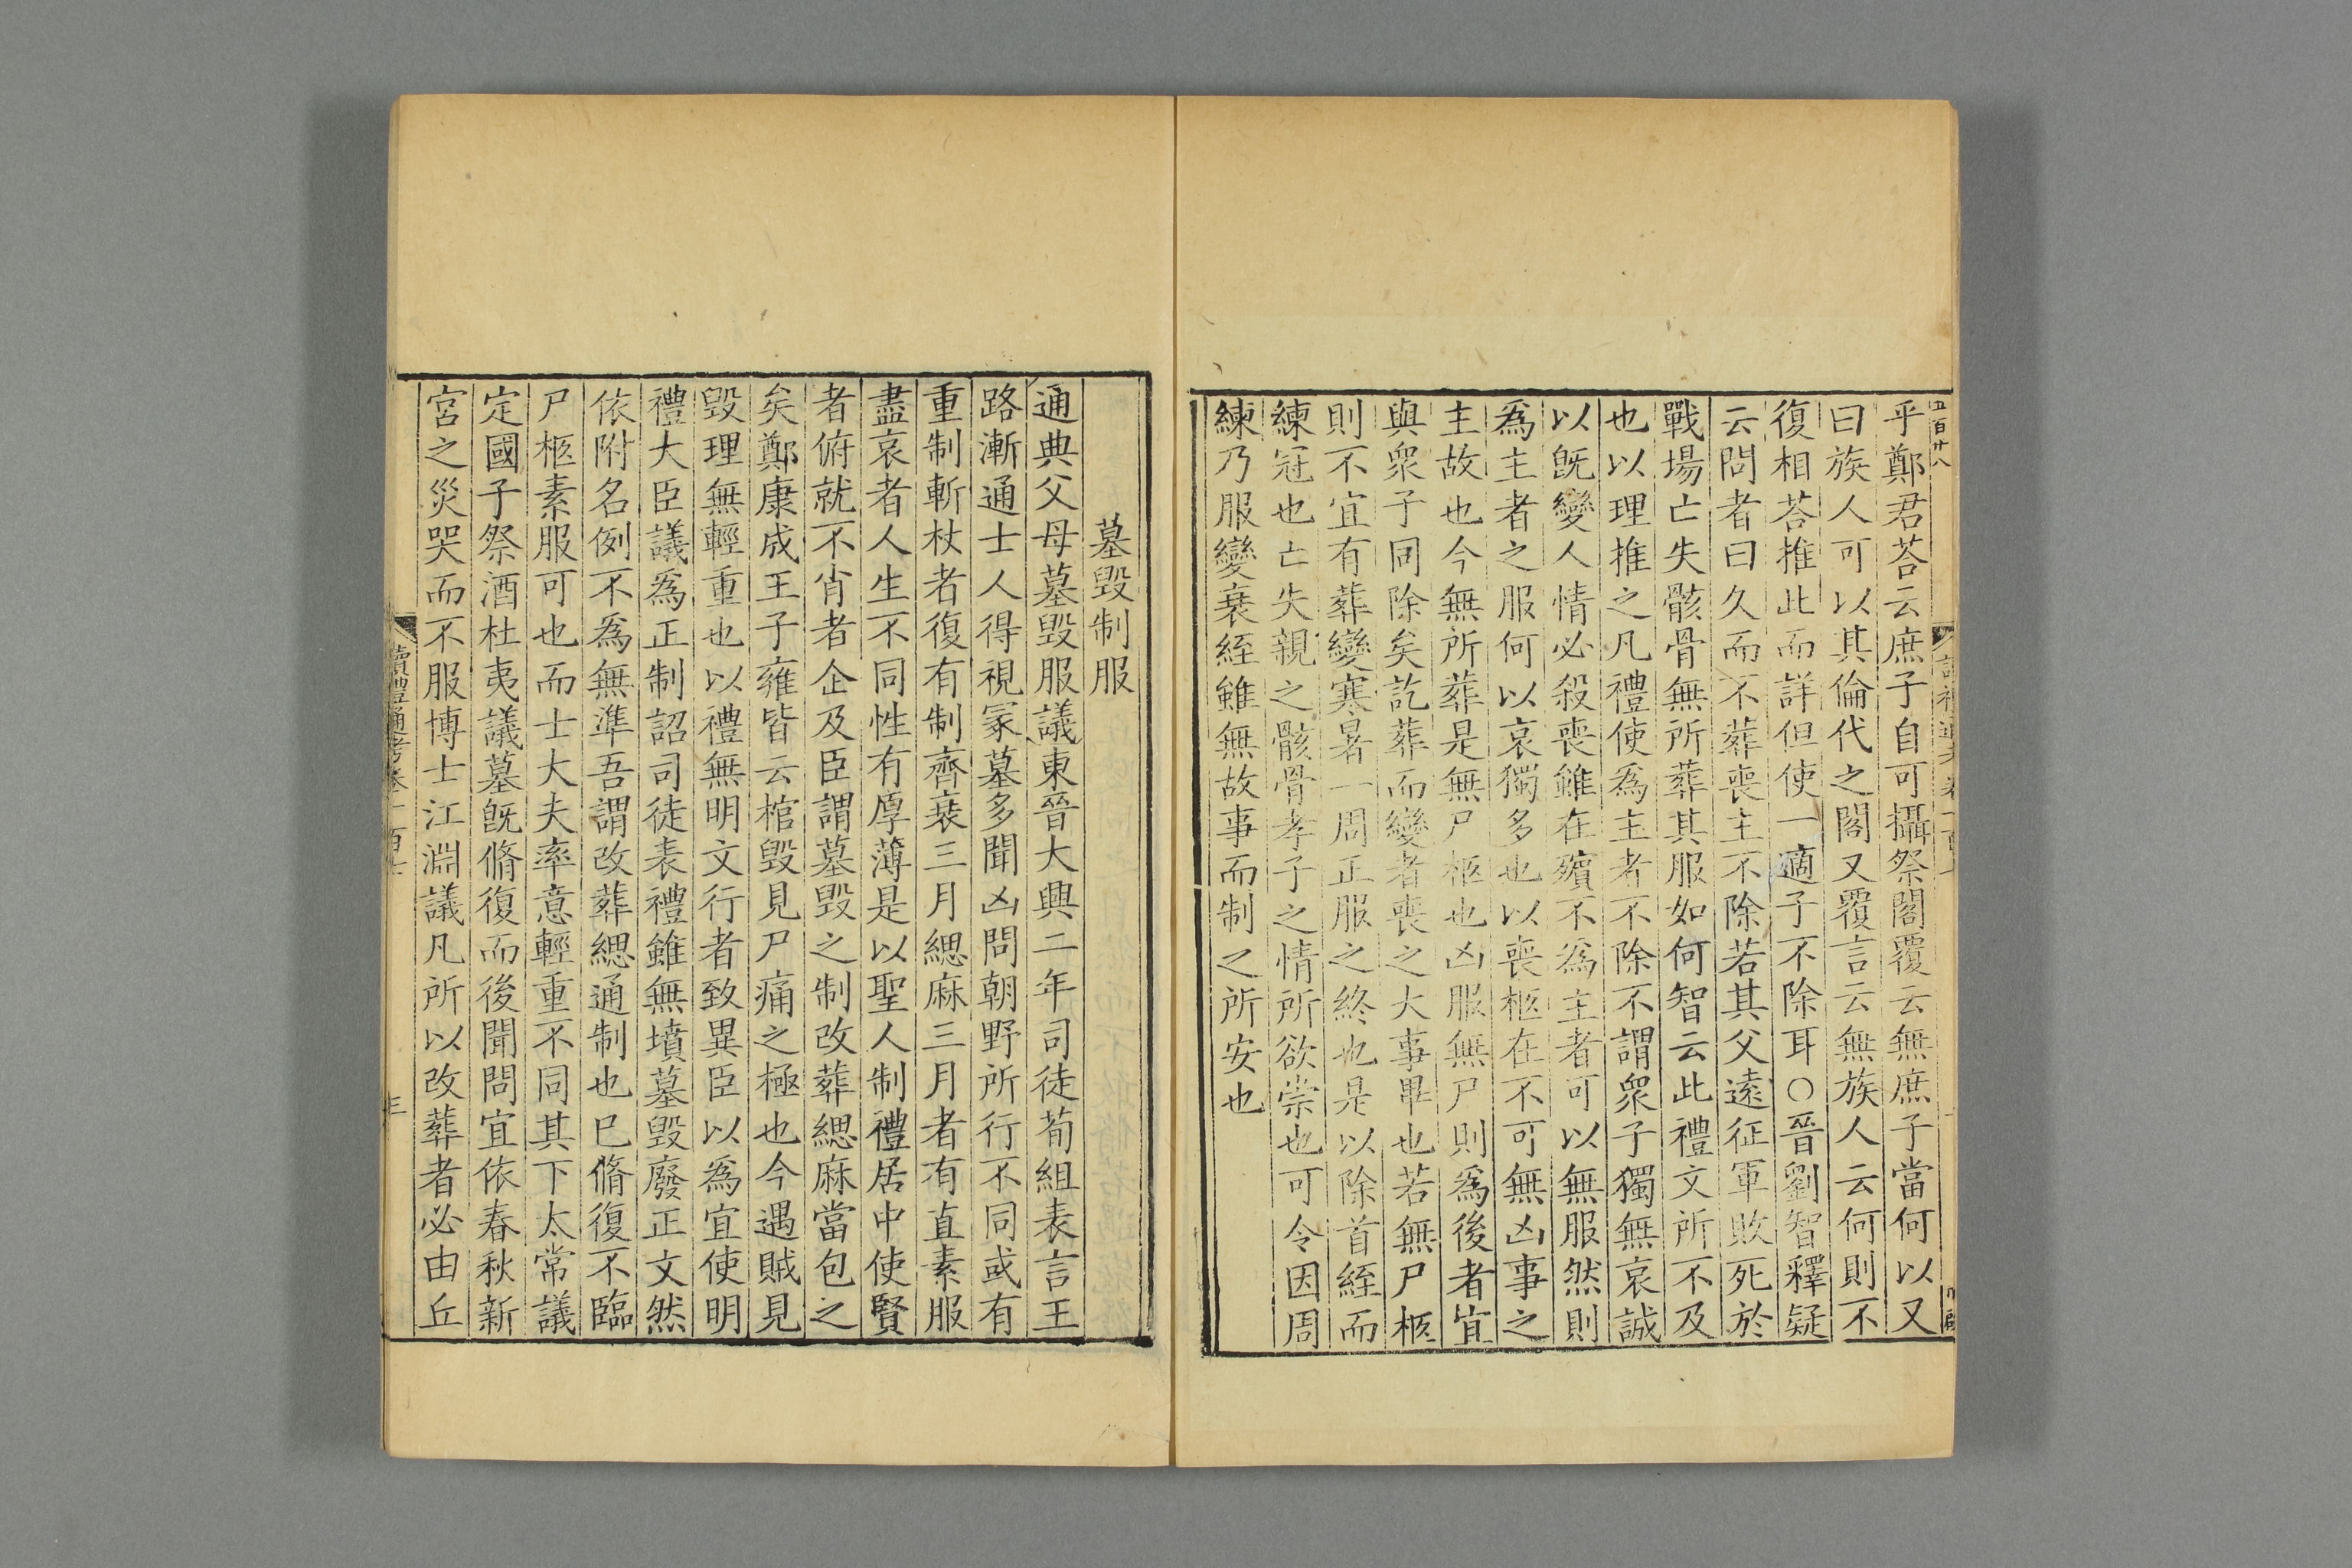 五百廿八
乎鄭君荅云庶子自可攝祭閣覆云無庶子當何以又
曰族人可以其倫代之閣又覆言云無族人云何則不
復相荅推此而詳但使一適子不除耳○晉劉智釋疑
云問者曰久而不葬喪主不除若其父遠征軍敗死於
戰場亡失骸骨無所葬其服如何智云此禮文所不及
也以理推之凡禮使爲主者不除不謂衆子獨無哀誠
以旣變人情必殺喪雖在殯不爲主者可以無服然則
爲主者之服何以哀獨多也以喪柩在不可無凶事之
主故也今無所葬是無尸柩也凶服無尸則爲後者宜
與衆子同除矣訖葬而變者喪之大事畢也若無尸柩
則不宜有葬變寒暑一周正服之終也是以除首絰而
練冠也亡失親之骸骨孝子之情所欲崇也可令因周
練乃服變衰絰雖無故事而制之所安也
墓毀制服
通典父母墓毀服議東晉大興二年司徒荀組表言王
路漸通士人得視冢墓多聞凶問朝野所行不同或有
重制斬杖者復有制齊衰三月緦麻三月者有直素服
盡哀者人生不同性有厚薄是以聖人制禮居中使賢
者俯就不肖者企及臣謂墓毀之制改葬緦麻當包之
矣鄭康成王子雍皆云棺毀見尸痛之極也今遇賊見
毀理無輕重也以禮無明文行者致異臣以爲宜使明
禮大臣議爲正制詔司徒表禮雖無墳墓毀廢正文然
依附名例不爲無準吾謂改葬緦通制也巳脩復不臨
尸柩素服可也而士大夫率意輕重不同其下太常議
定國子祭酒杜夷議墓旣脩復而後聞問宜依春秋新
宮之災哭而不服博士江淵議凡所以改葬者必由丘
讀禮通考卷一百七
三